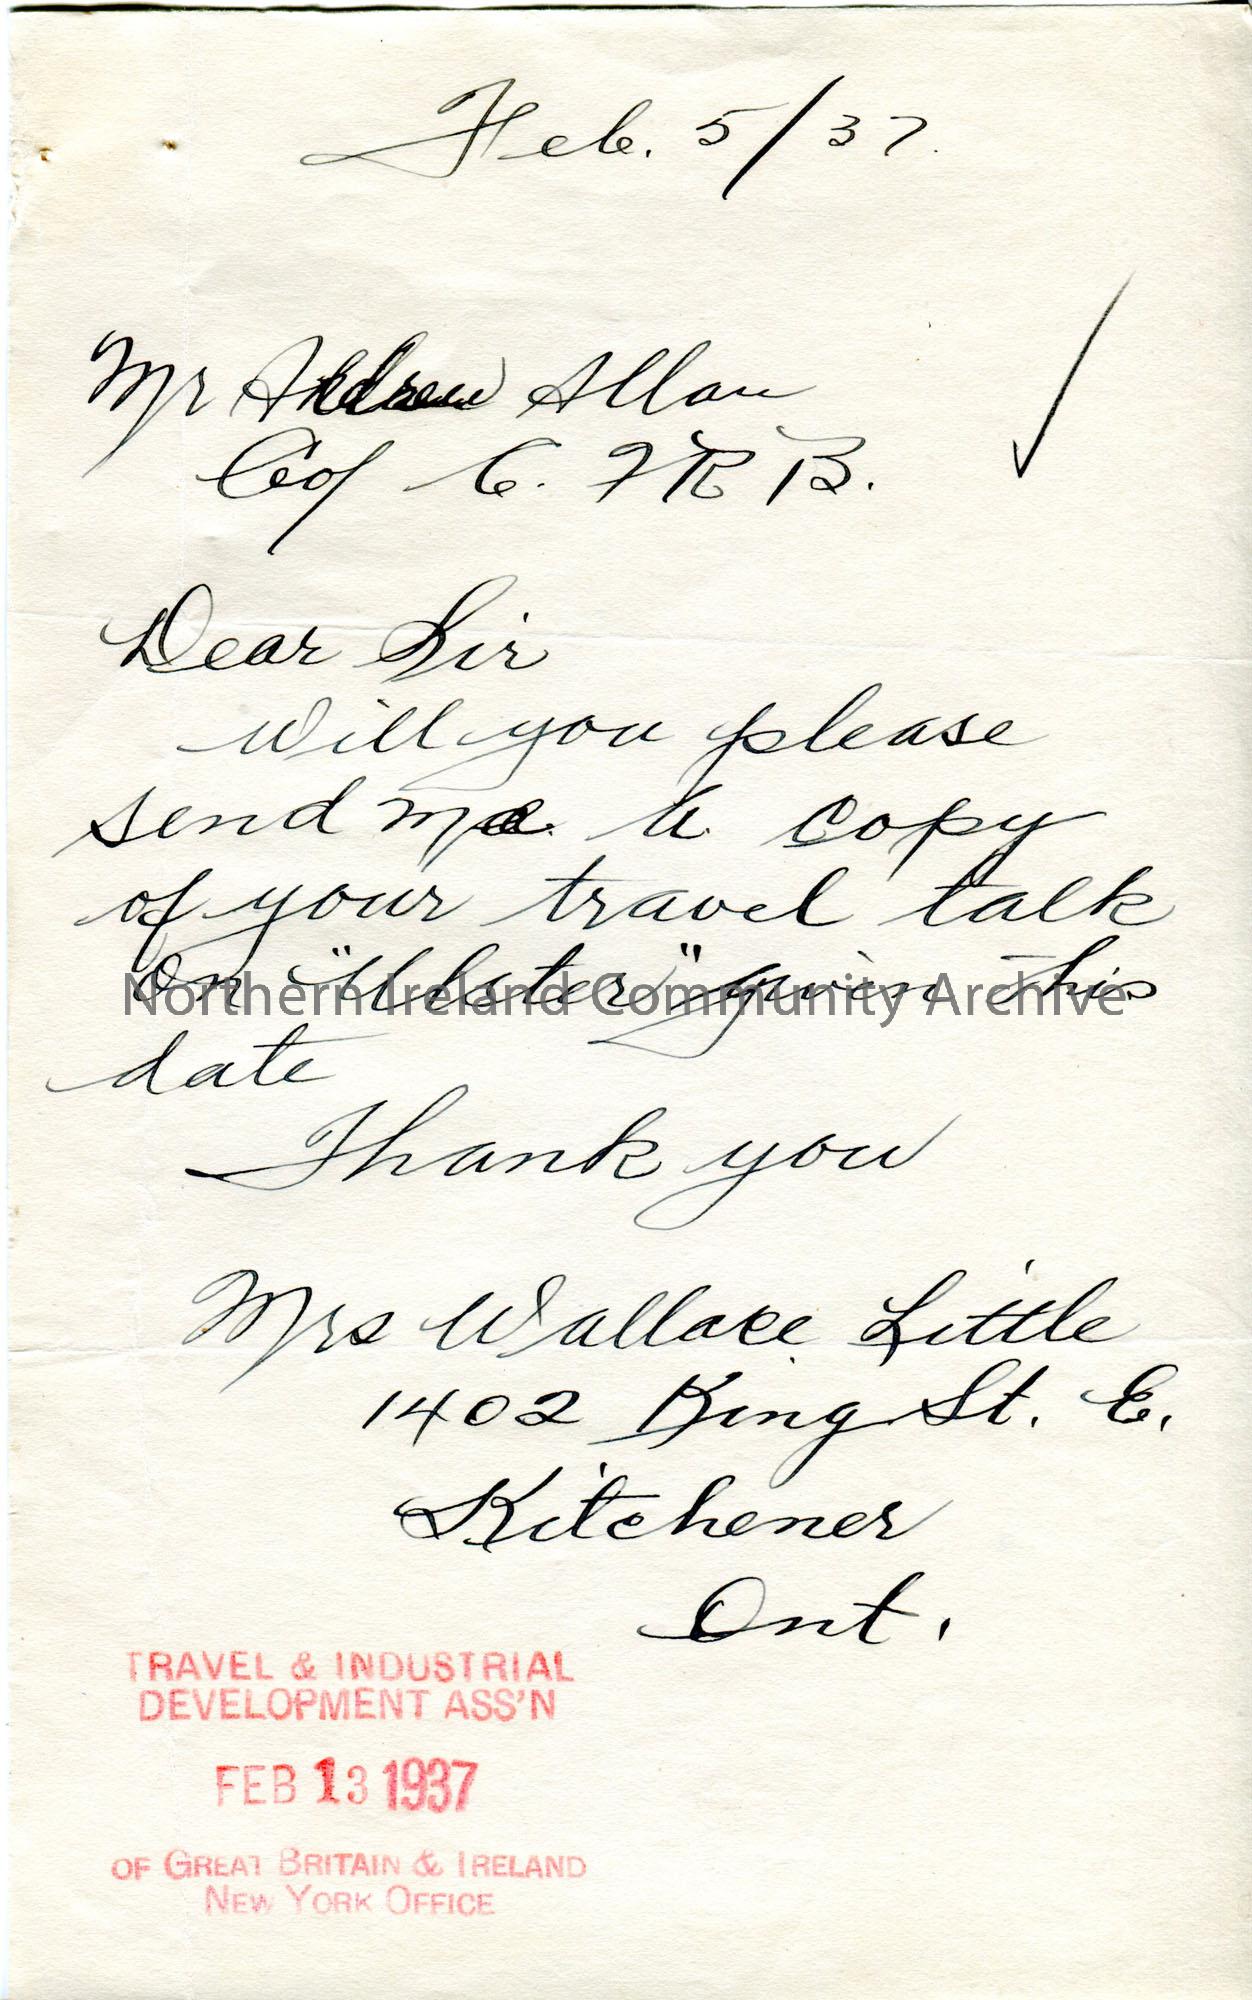 Feb. 5/37.
Mr Andrew Allan
C/of C. F R B.
Dear Sir
Will you please
send me a copy
of your travel talk
on "Ulster" given this
Northern Ireland Community Archive
date
Thank you
Mrs Wallace Little
1402 King St. E.
Kitchener
Ont.
TRAVEL & INDUSTRIAL
DEVELOPMENT ASS'N
FEB 13 1937
OF GREAT BRITAIN & IRELAND
NEW YORK OFFICE